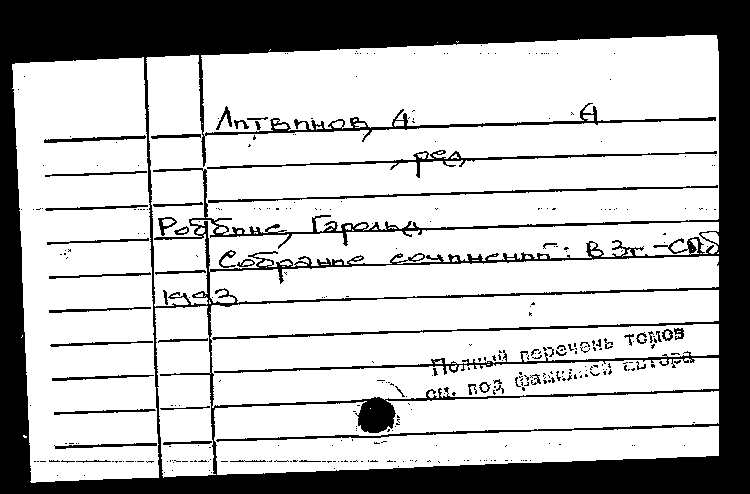 Литвинов, А А
, ред.
Роббинс, Гарольд
Собрание сочинений: В 3т. - СПб
1993
Полный перечень томов
см. под фамилией автора